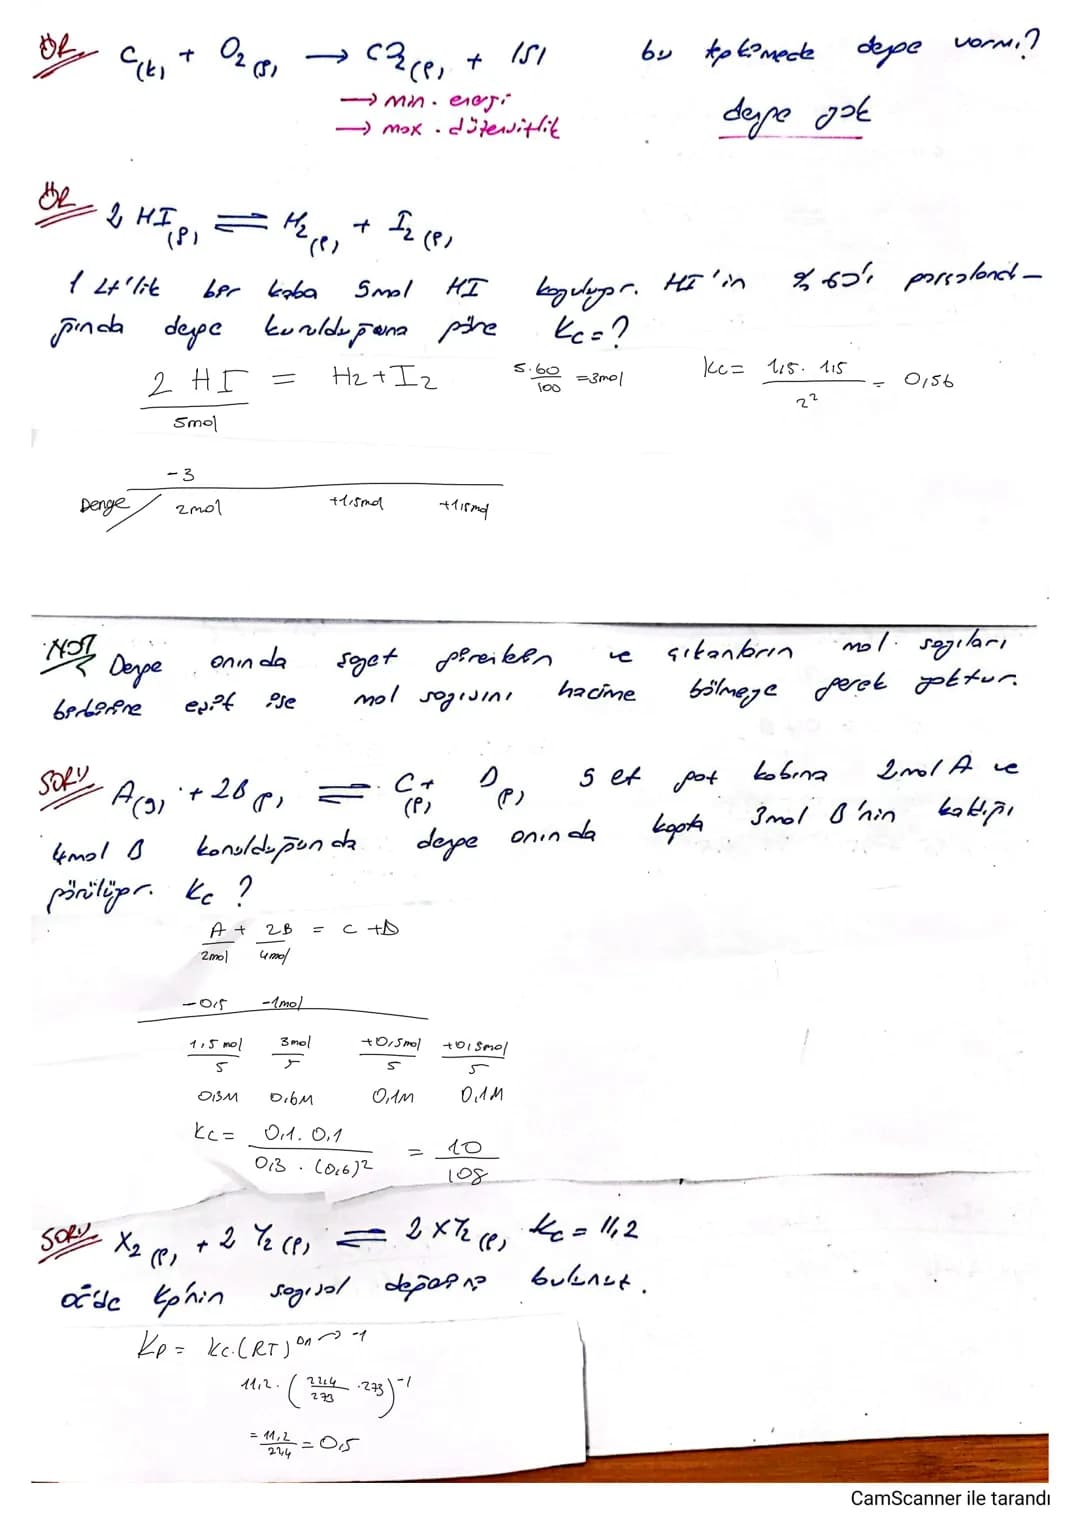 ÖR C(k) + O2 (g) → CO2 (g) + ISI bu tepkimede denge varmı?
→ min. enerji
→ max. düzensizlik
denge yok
ÖR 2 HI (g) ⇌ H2 (g) + I2 (g)
1 Lt'lik bir kaba 5mol HI koyuluyor. HI'in % 60'ı parçalandı-
ğında denge kurulduğuna göre Kc = ?
2 HI = H2 + I2
5mol
5.60/100 = 3mol
Kc = 1,5 . 1,5 / 2² = 0,56
-3
Denge 2mol +1,5mol +1,5mol
NOT Denge anında şayet girenlerin ve çıkanların mol sayıları
birbirine eşit ise mol sayısını hacime bölmeye gerek yoktur.
SORU A(g) + 2B (g) ⇌ C (g) + D (g) 5 lt kabına 2mol A ve
4mol B konulduğunda denge anında kapta 3mol B'nin kaldığı
görülüyor. Kc ?
A + 2B = C + D
2mol 4mol
-0,5 -1mol
1,5 mol/5 3mol/5 +0,5mol/5 +0,5mol/5
0,3M 0,6M 0,1M 0,1M
Kc = 0,1 . 0,1 / 0,3 . (0,6)2 = 10/108
SORU X2 (g) + 2 Y2 (g) ⇌ 2 XY2 (g) Kc = 11,2
0°C'de Kp'nin sayısal değerini bulunuz.
Kp = Kc.(RT)Δn → -1
11,2 . (22,4/273 . 273)-1
= 11,2/22,4 = 0,5
CamScanner ile tarandı